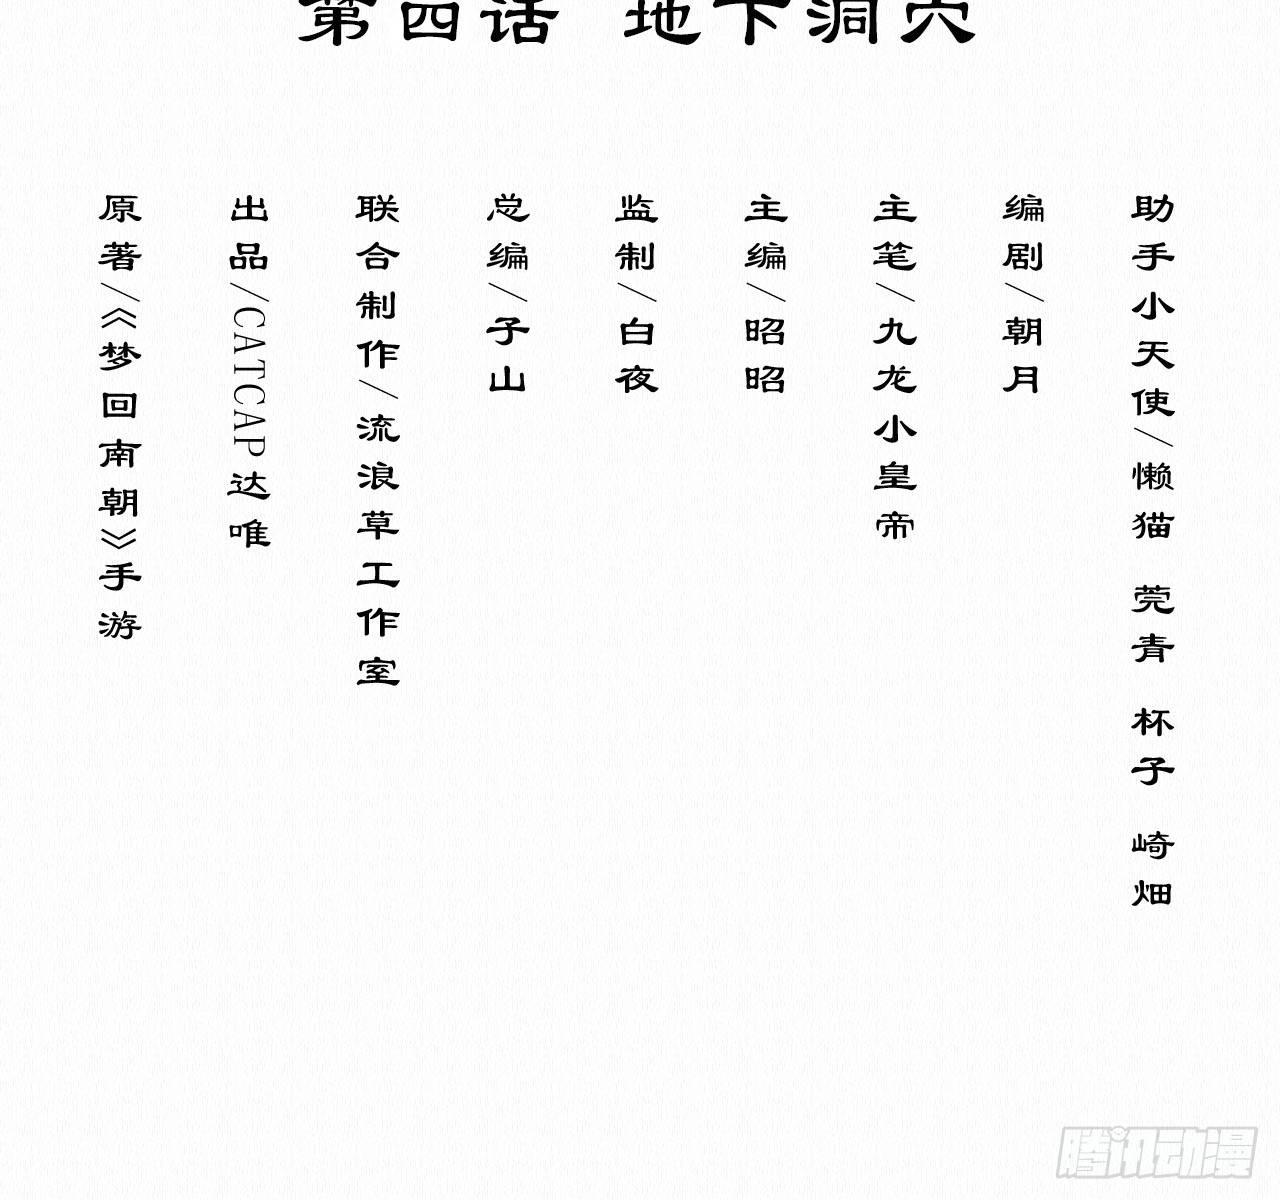 第四话 地下洞穴
原著/《梦回南朝》手游
出品/CATCAP达唯
联合制作/流浪草工作室
总编/子山
监制/白夜
主编/昭昭
主笔/九龙小皇帝
编剧/朝月
助手小天使/懒猫 莞青 杯子 崎畑
腾讯动漫